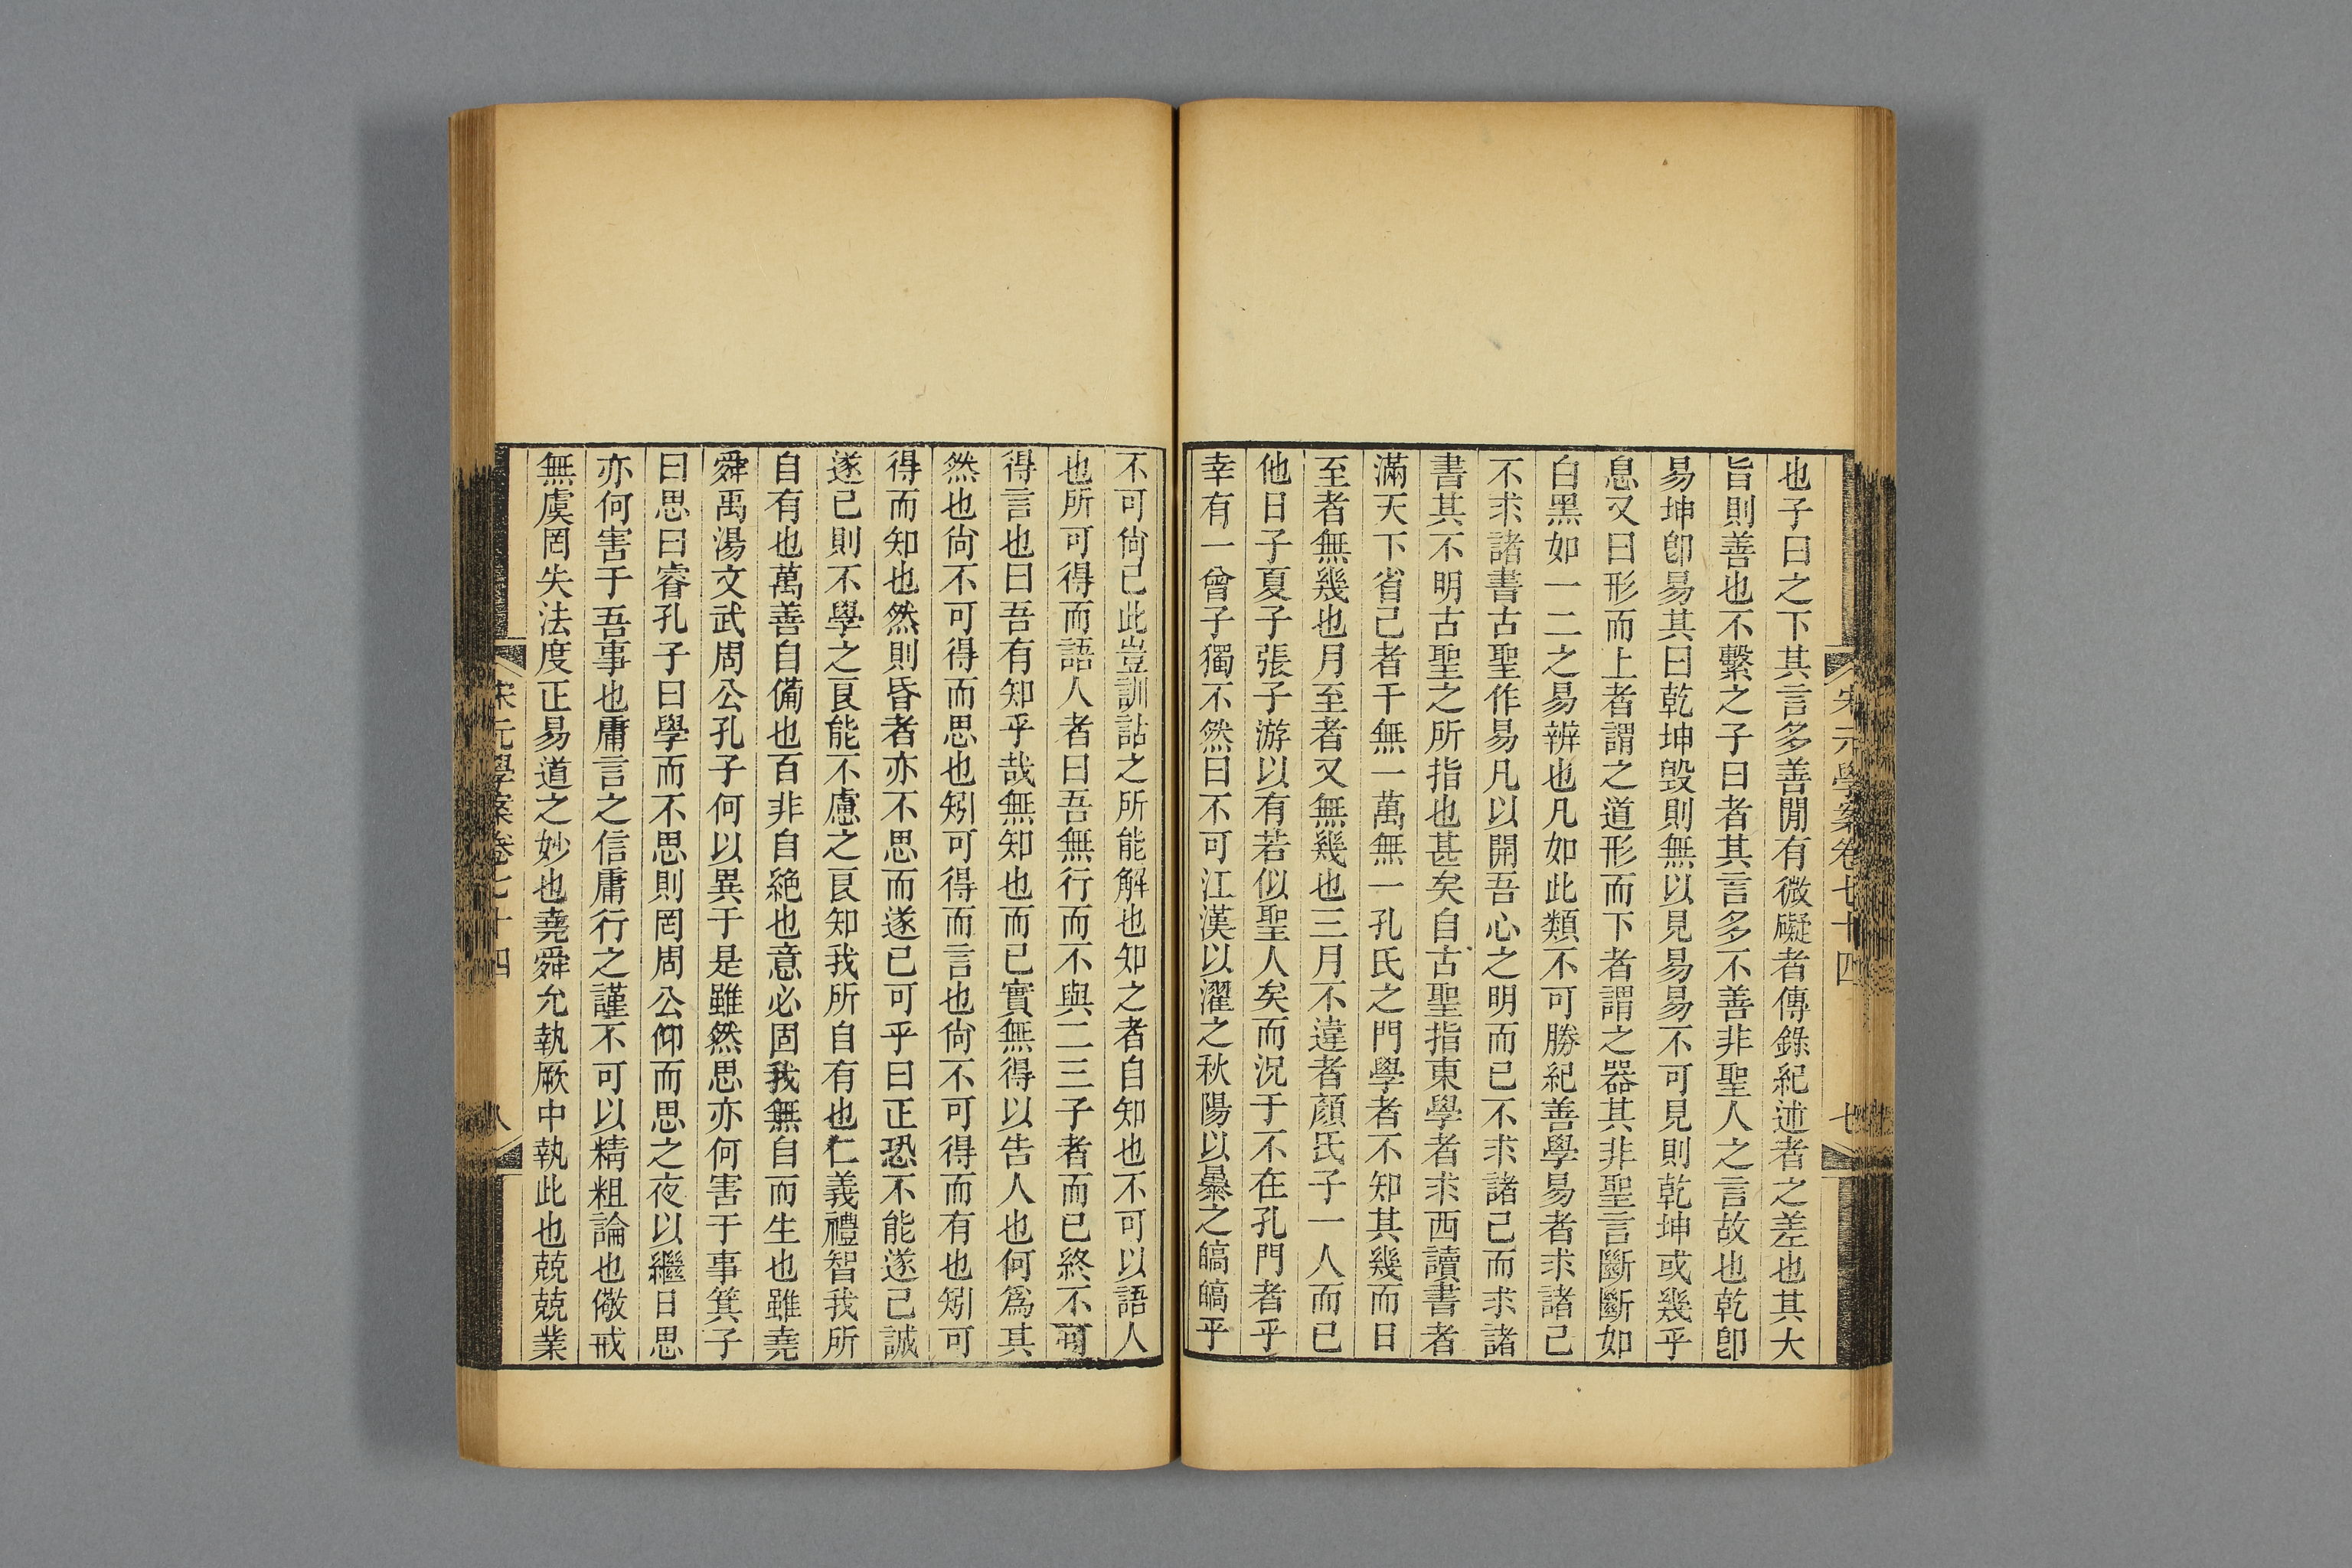 宋元學案卷七十四
七
也子曰之下其言多善閒有微礙者傳錄紀述者之差也其大
旨則善也不繫之子曰者其言多不善非聖人之言故也乾卽
易坤卽易其曰乾坤毀則無以見易易不可見則乾坤或幾乎
息又曰形而上者謂之道形而下者謂之器其非聖言斷斷如
白黑如一二之易辨也凡如此類不可勝紀善學易者求諸己
不求諸書古聖作易凡以開吾心之明而已不求諸己而求諸
書其不明古聖之所指也甚矣自古聖指東學者求西讀書者
滿天下省己者千無一萬無一孔氏之門學者不知其幾而日
至者無幾也月至者又無幾也三月不違者顏氏子一人而已
他日子夏子張子游以有若似聖人矣而況于不在孔門者乎
幸有一曾子獨不然曰不可江漢以濯之秋陽以暴之皜皜乎
不可尙已此豈訓詁之所能解也知之者自知也不可以語人
也所可得而語人者曰吾無行而不與二三子者而已終不可
得言也曰吾有知乎哉無知也而已實無得以告人也何爲其
然也尙不可得而思也矧可得而言也尙不可得而有也矧可
得而知也然則昏者亦不思而遂已可乎曰正恐不能遂己誠
遂已則不學之良能不慮之良知我所自有也仁義禮智我所
自有也萬善自備也百非自絕也意必固我無自而生也雖堯
舜禹湯文武周公孔子何以異于是雖然思亦何害于事箕子
曰思曰睿孔子曰學而不思則罔周公仰而思之夜以繼日思
亦何害于吾事也庸言之信庸行之謹不可以精粗論也儆戒
無虞罔失法度正易道之妙也堯舜允執厥中執此也兢兢業
宋元學案卷七十四
八